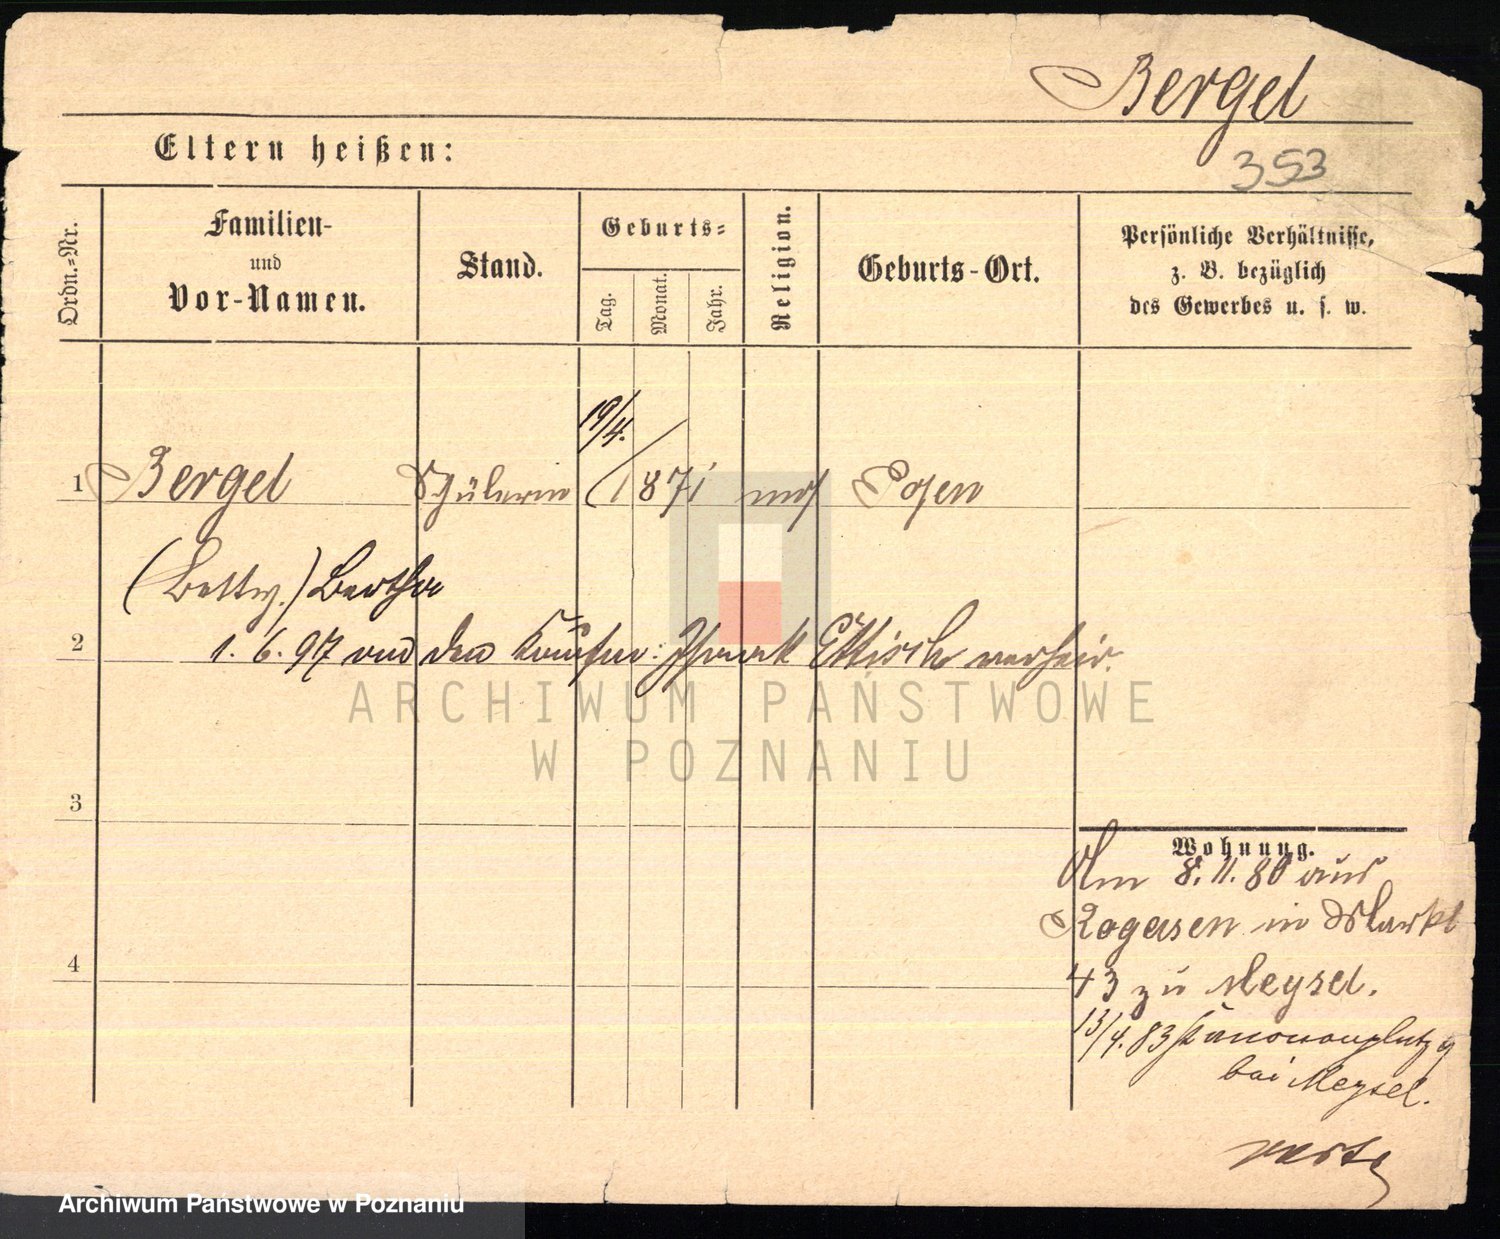 Bergel
353
Eltern heißen:
Ordn.-Nr.
Familien-
und
Vor-Namen.
Stand.
Geburts-
Tag.
Monat.
Jahr.
Religion.
Geburts-Ort.
Persönliche Verhältnisse,
z. B. bezüglich
des Gewerbes u. s. w.
19/4.
1 Bergel Schülerin 1871 mos Posen
(Betty.) Bertha
2 1. 6. 97 an den Kaufm: verheir.
ARCHIWUM PAŃSTWOWE
W POZNANIU
3
Wohnung.
Am 8. 11. 80 aus
Rogasen in Markt
4 43 zu Meysel.
13/4. 83 Kanonenplatz 9
bei Meysel.
verte
Archiwum Państwowe w Poznaniu